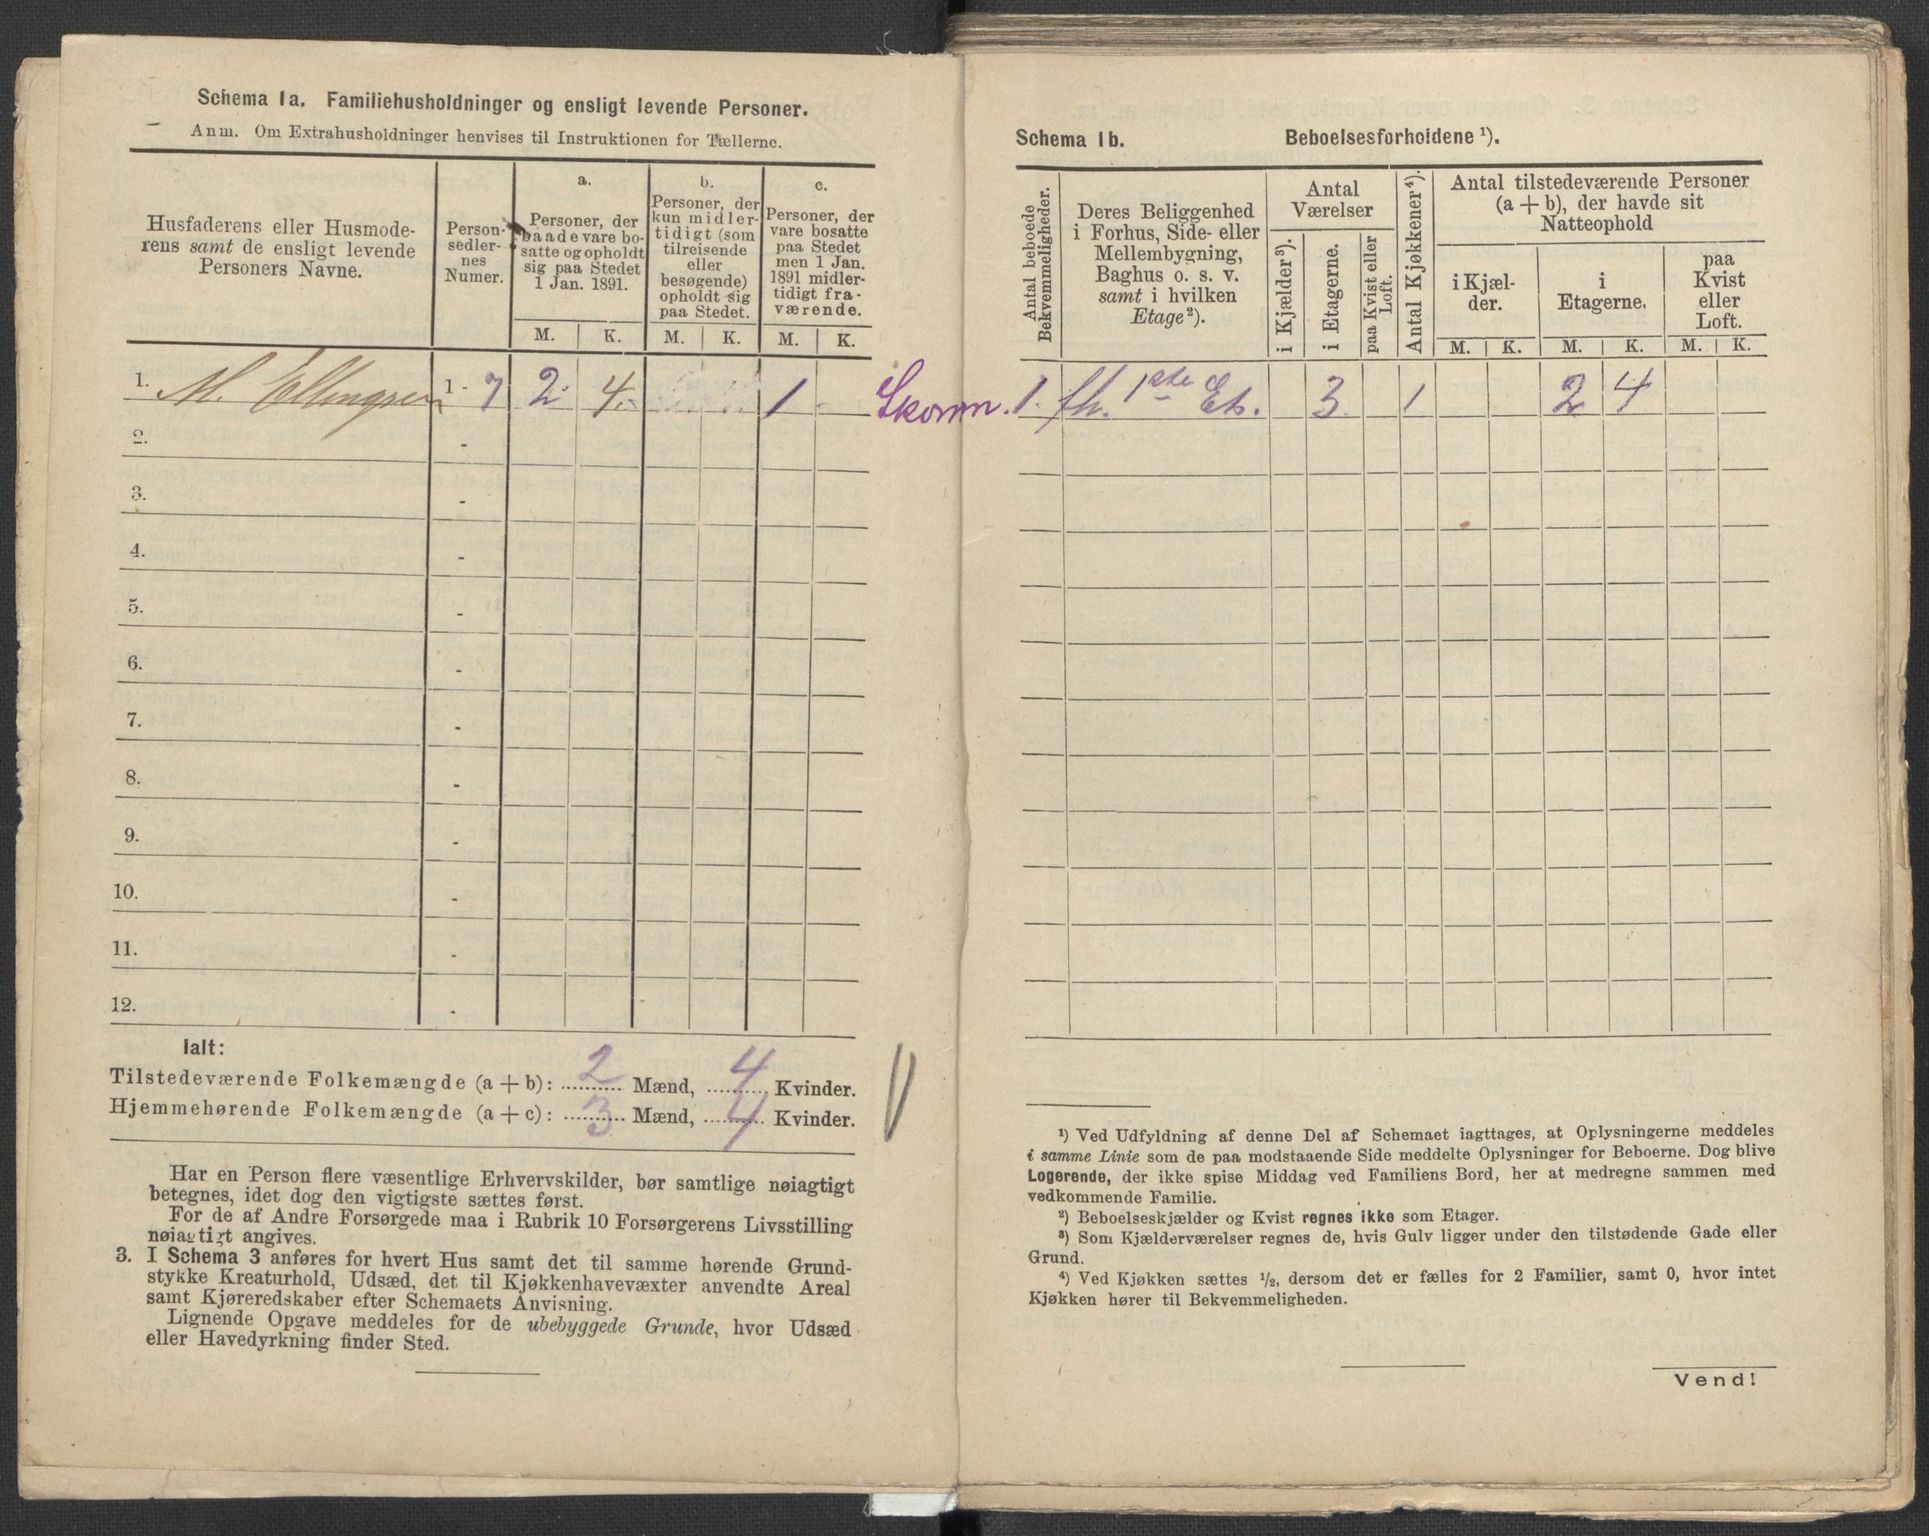 Schema 1a. Familiehusholdninger og ensligt levende Personer.
Anm. Om Extrahusholdninger henvises til Instruktionen for Tællerne.
Husfaderens eller Husmode-
rens samt de ensligt levende
Personers Navne.
Person-
sedler-
nes
Numer.
a.
Personer, der
baade vare bo-
satte og opholdt
sig paa Stedet
1 Jan. 1891.
b.
Personer, der
kun midler-
tidigt (som
tilreisende
eller
besøgende)
opholdt sig
paa Stedet.
c.
Personer, der
vare bosatte
paa Stedet
men 1 Jan.
1891 midler-
tidigt fra-
værende.
M. K. M. K. M. K.
1. M. Ellingsen 1 - 7 2 4 1 Skomm.
2. -
3. -
4. -
5. -
6. -
7. -
8. -
9. -
10. -
11. -
12. -
Ialt:
Tilstedeværende Folkemængde (a + b): 2 Mænd, 4 Kvinder.
Hjemmehørende Folkemængde (a + c): 3 Mænd, 4 Kvinder.
Har en Person flere væsentlige Erhvervskilder, bør samtlige nøiagtigt
betegnes, idet dog den vigtigste sættes først.
For de af Andre Forsørgede maa i Rubrik 10 Forsørgerens Livsstilling
nøiagtigt angives.
3. I Schema 3 anføres for hvert Hus samt det til samme hørende Grund-
stykke Kreaturhold, Udsæd, det til Kjøkkenhavevæxter anvendte Areal
samt Kjøreredskaber efter Schemaets Anvisning.
Lignende Opgave meddeles for de ubebyggede Grunde, hvor Udsæd
eller Havedyrkning finder Sted.
Schema 1b. Beboelsesforholdene ¹).
Antal beboede
Bekvemmeligheder.
Deres Beliggenhed
i Forhus, Side- eller
Mellembygning,
Baghus o. s. v.
samt i hvilken
Etage²).
Antal
Værelser
i Kjælder³).
i Etagerne.
paa Kvist eller
Loft.
Antal Kjøkkener⁴).
Antal tilstedeværende Personer
(a + b), der havde sit
Natteophold
i Kjæl-
der.
i
Etagerne.
paa
Kvist
eller
Loft.
M. K. M. K. M. K.
1. fh. 1ste Et. 3 1 2 4
¹) Ved Udfyldning af denne Del af Schemaet iagttages, at Oplysningerne meddeles
i samme Linie som de paa modstaaende Side meddelte Oplysninger for Beboerne. Dog blive
Logerende, der ikke spise Middag ved Familiens Bord, her at medregne sammen med
vedkommende Familie.
²) Beboelseskjælder og Kvist regnes ikke som Etager.
³) Som Kjælderværelser regnes de, hvis Gulv ligger under den tilstødende Gade eller
Grund.
⁴) Ved Kjøkken sættes ½, dersom det er fælles for 2 Familier, samt 0, hvor intet
Kjøkken hører til Bekvemmeligheden.
Vend!